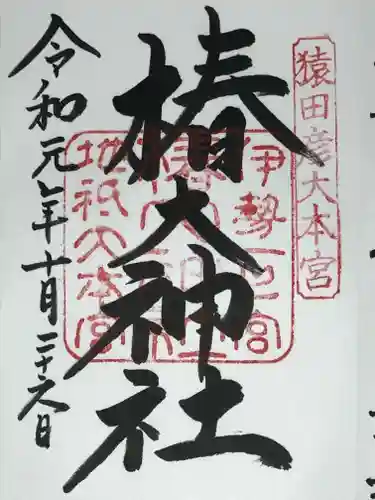 猿田彦大本宮
伊勢一之宮
椿大神社
地祇大本宮
令和元年十月二十六日